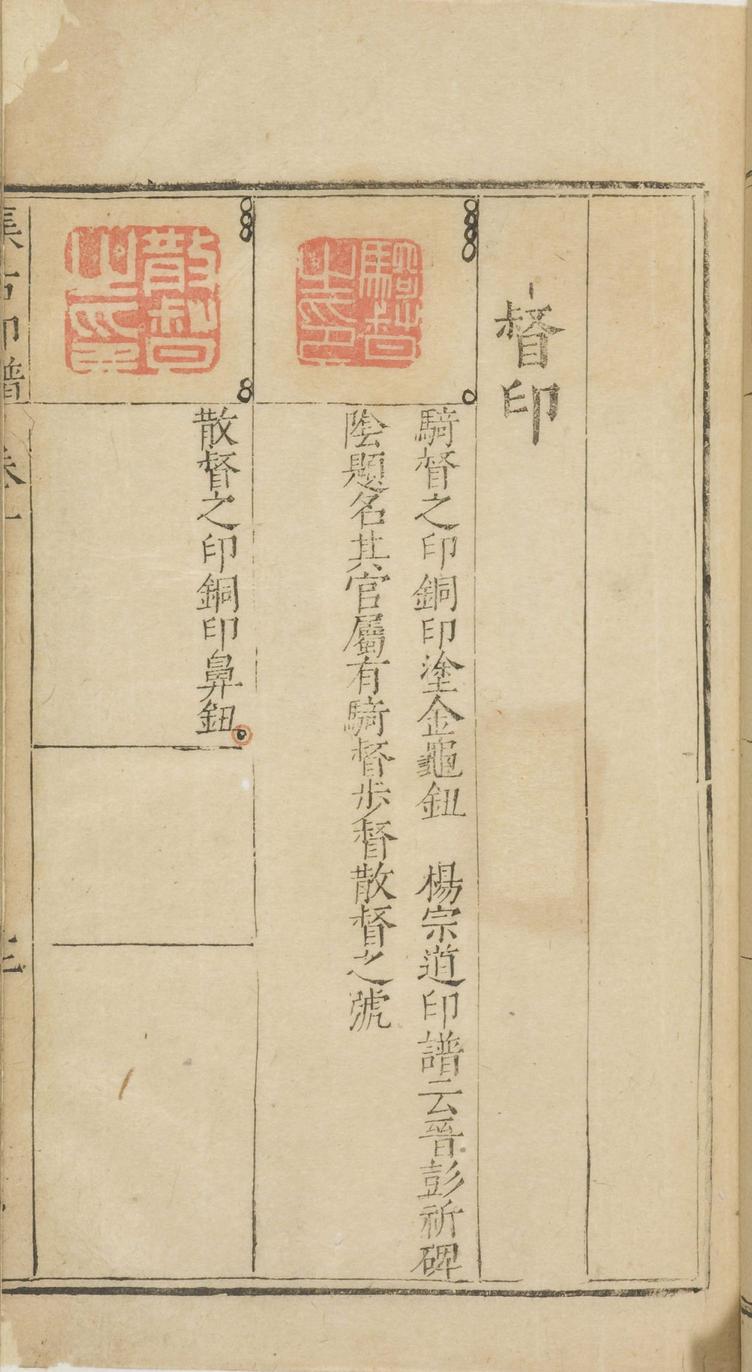 督印
騎督之印
騎督之印銅印塗金龜鈕　楊宗道印譜云晉彭祈碑
陰題名其官屬有騎督步督散督之號
散督之印
散督之印銅印鼻鈕
集古印譜　卷一